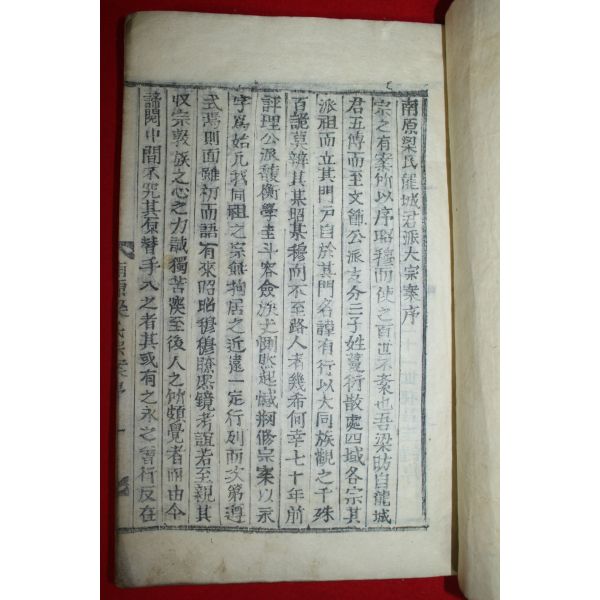 南原梁氏龍城君派大宗案序
宗之有案所以序昭穆而使之百世不紊也吾梁昉自龍城
君五傳而至文簡公派支分三子姓蔓衍散處四域各宗其
派祖而立其門戶自於其門名諱有行以大同族觀之千殊
百詭莫辨其某昭某穆而不至路人者幾希何幸七十年前
評理公派馥衡學圭斗容僉族丈惻然起感捐修宗案以永
字爲始凡我同祖之宗無拘居之近遠一定行列而次第遵
式焉則面雖初而語有來昭昭穆穆瞭然鏡考誼若至親其
収宗敦族之心之力誠獨苦矣至後人之所頗覺者而由今
諦閱中間不究其原替手入之者其或有之永之會行反在
南原梁氏宗案序 一